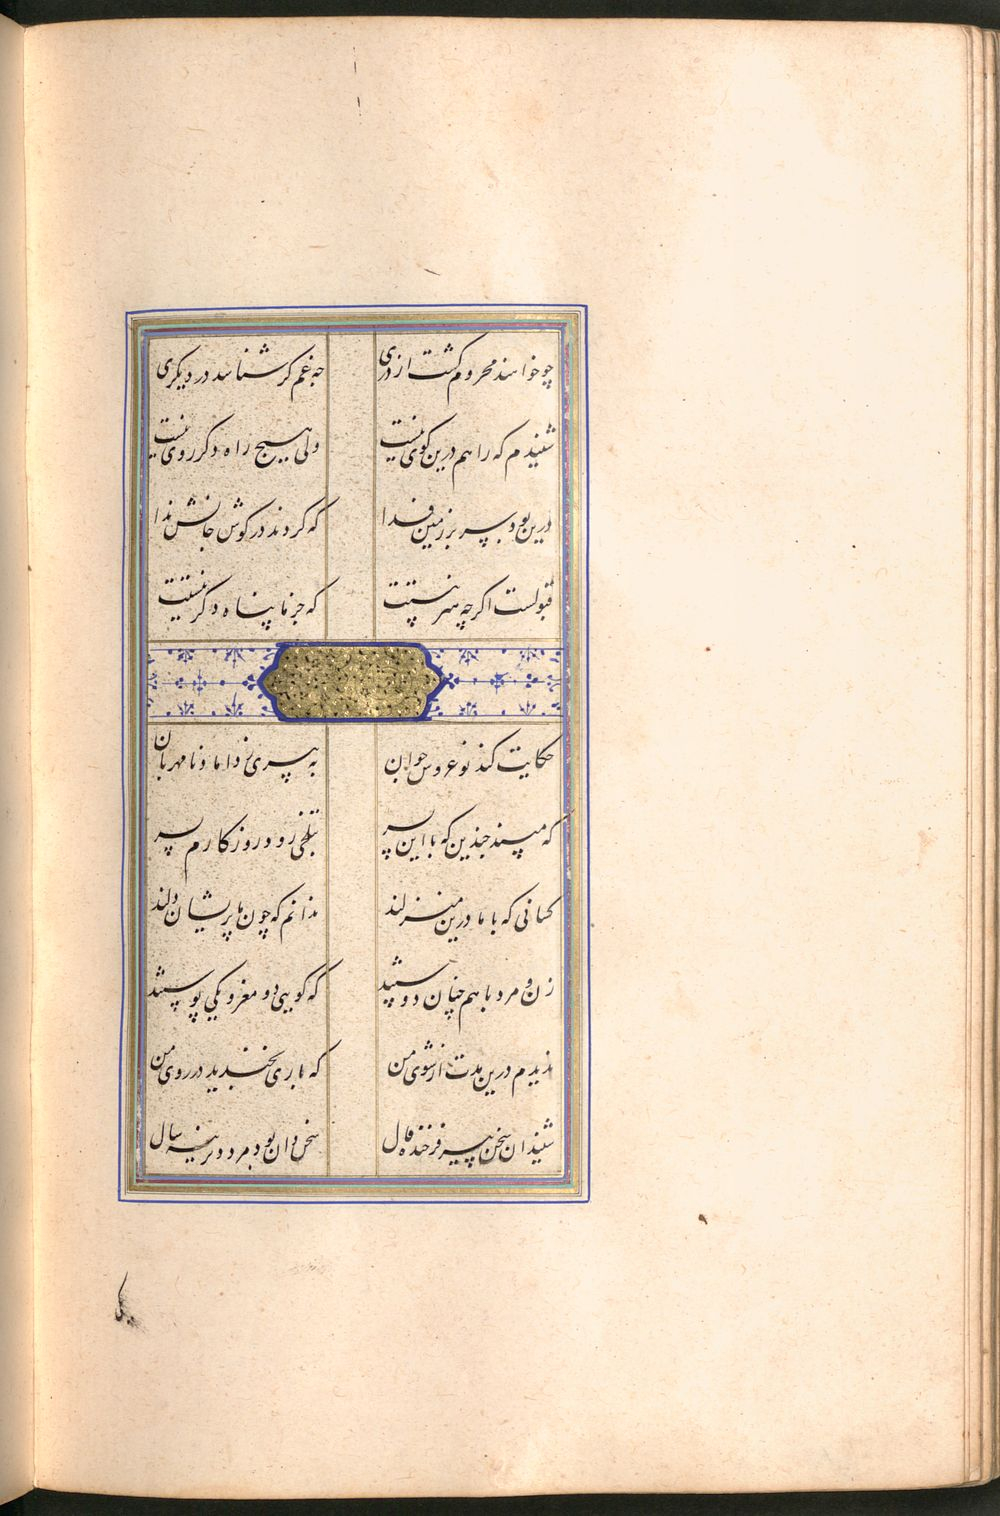 چو خواهنده محروم گشت از دری چه غم گر شناسد در دیگری
شنیدم که راهم درین کوی نیست ولی هیچ راه دگر روی نیست
درین بود بر سر بر زمین فدا که کردند در گوش جانش ندا
قبولست اگرچه هنر نیستت که جز ما پناه دگر نیستت
حکایت کند نوعروس جوان به پیری ز داماد نامهربان
که مپسند چندین که با این پسر بتلخی رود روزگارم بسر
کسانی که با ما درین منزلند ندانم که چون ما پریشان دلند
زن و مرد با هم چنان دوستند که گویی دو مغز و یکی پوستند
ندیدم درین مدت از شوی من که باری بخندید در روی من
شنید آن سخن پیر فرخنده فال سخن دان بود مرد دیرینه سال
یکی